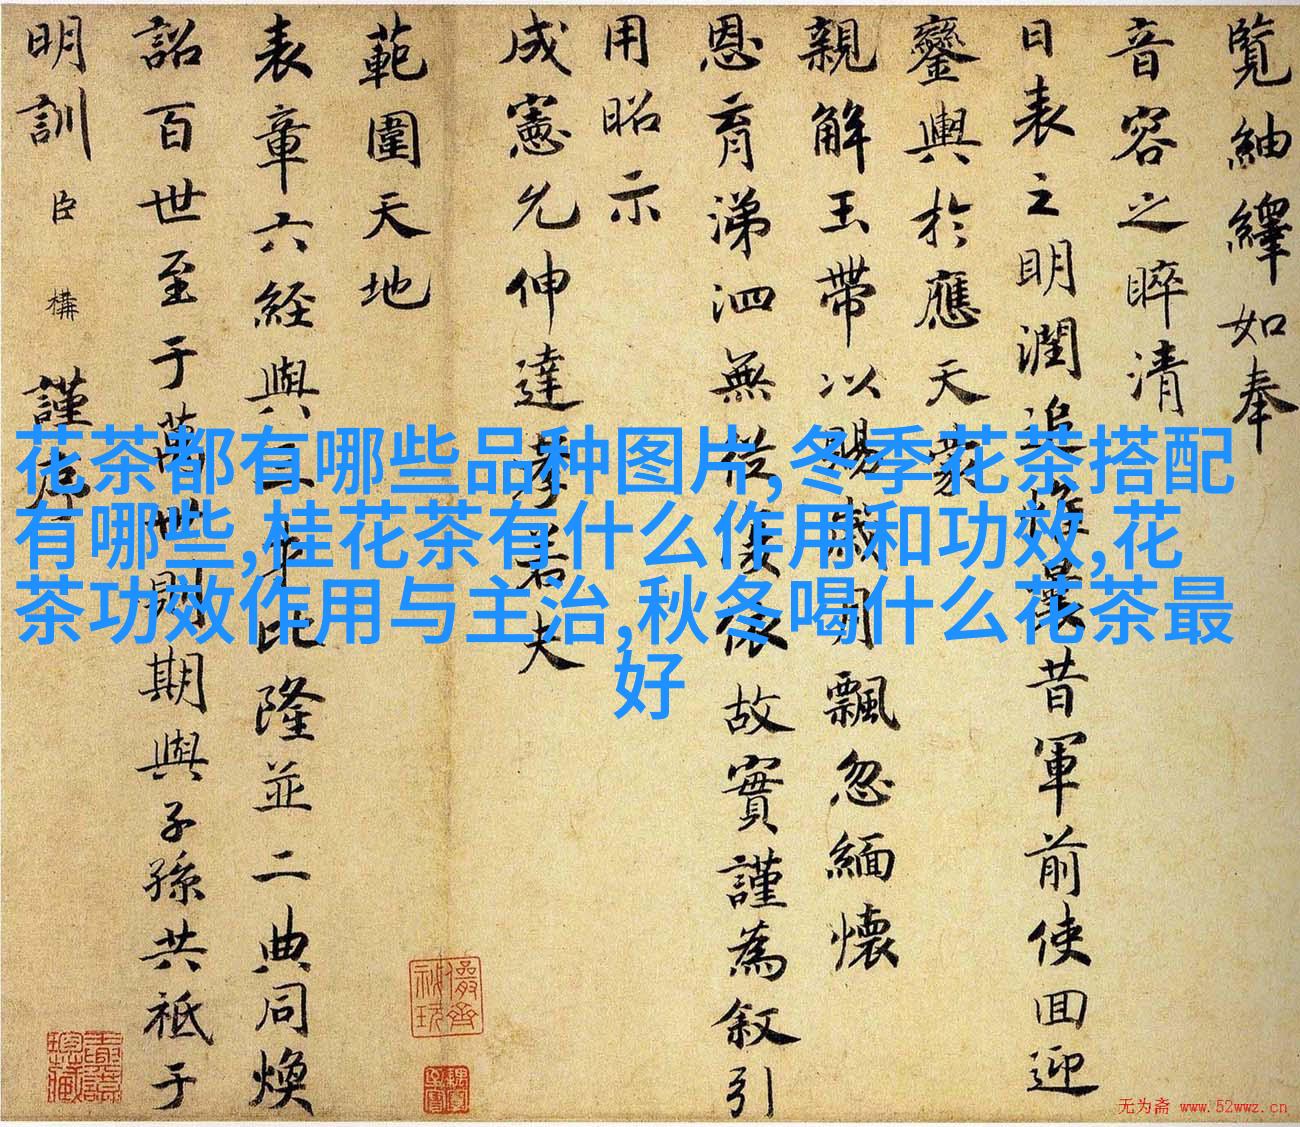 覽紬繹如奉
音容之睟清
日表之明潤追惟曩昔軍前使回迎
鑾輿於應天蒙
親解玉帶以賜歲月飄忽緬懷
恩育涕泗無從依故實謹為叙引
用昭示
成憲允伸達孝若夫
範圍天地
表章六經與三比隆並二典同煥
詔百世至于萬世則期與子孫共祗于
明訓臣構謹序
花茶都有哪些品种图片,冬季花茶搭配
有哪些,桂花茶有什么作用和功效,花
茶功效作用与主治,秋冬喝什么花茶最
好
无为斋 www.52wwz.cn